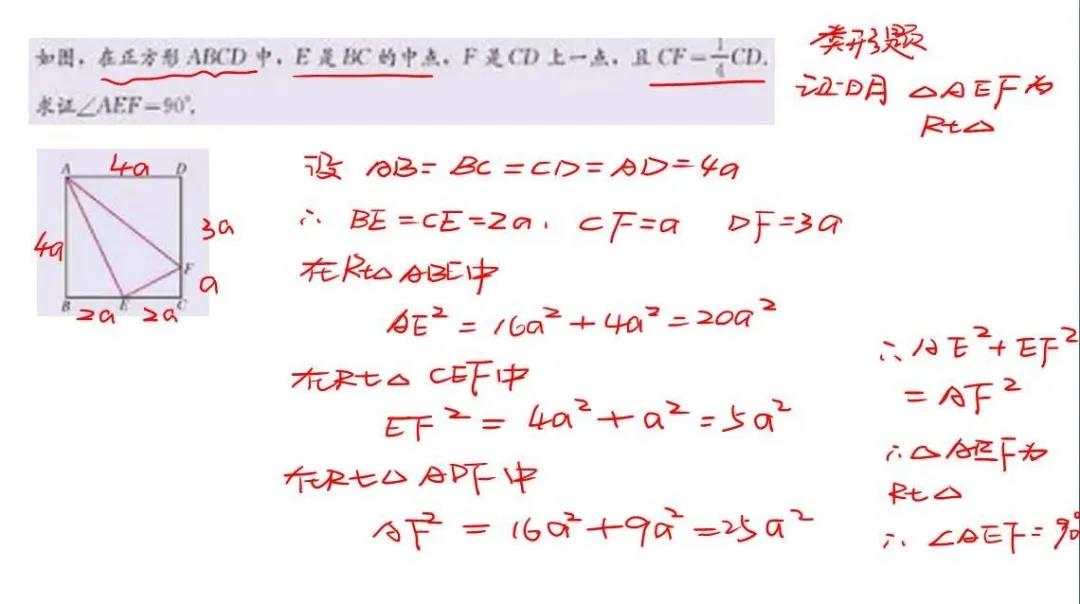 如图，在正方形ABCD中，E是BC的中点，F是CD上一点，且CF=1/4CD.
求证∠AEF=90°.
类形题
证明 △AEF为
Rt△
A 4a D
4a
3a
F
a
B 2a E 2a C
设 AB=BC=CD=AD=4a
∴ BE=CE=2a. CF=a DF=3a
在Rt△ABE中
AE²=16a²+4a²=20a²
在Rt△CEF中
EF²=4a²+a²=5a²
在Rt△ADF中
AF²=16a²+9a²=25a²
∴AE²+EF²
=AF²
∴△AEF为
Rt△
∴∠AEF=90°